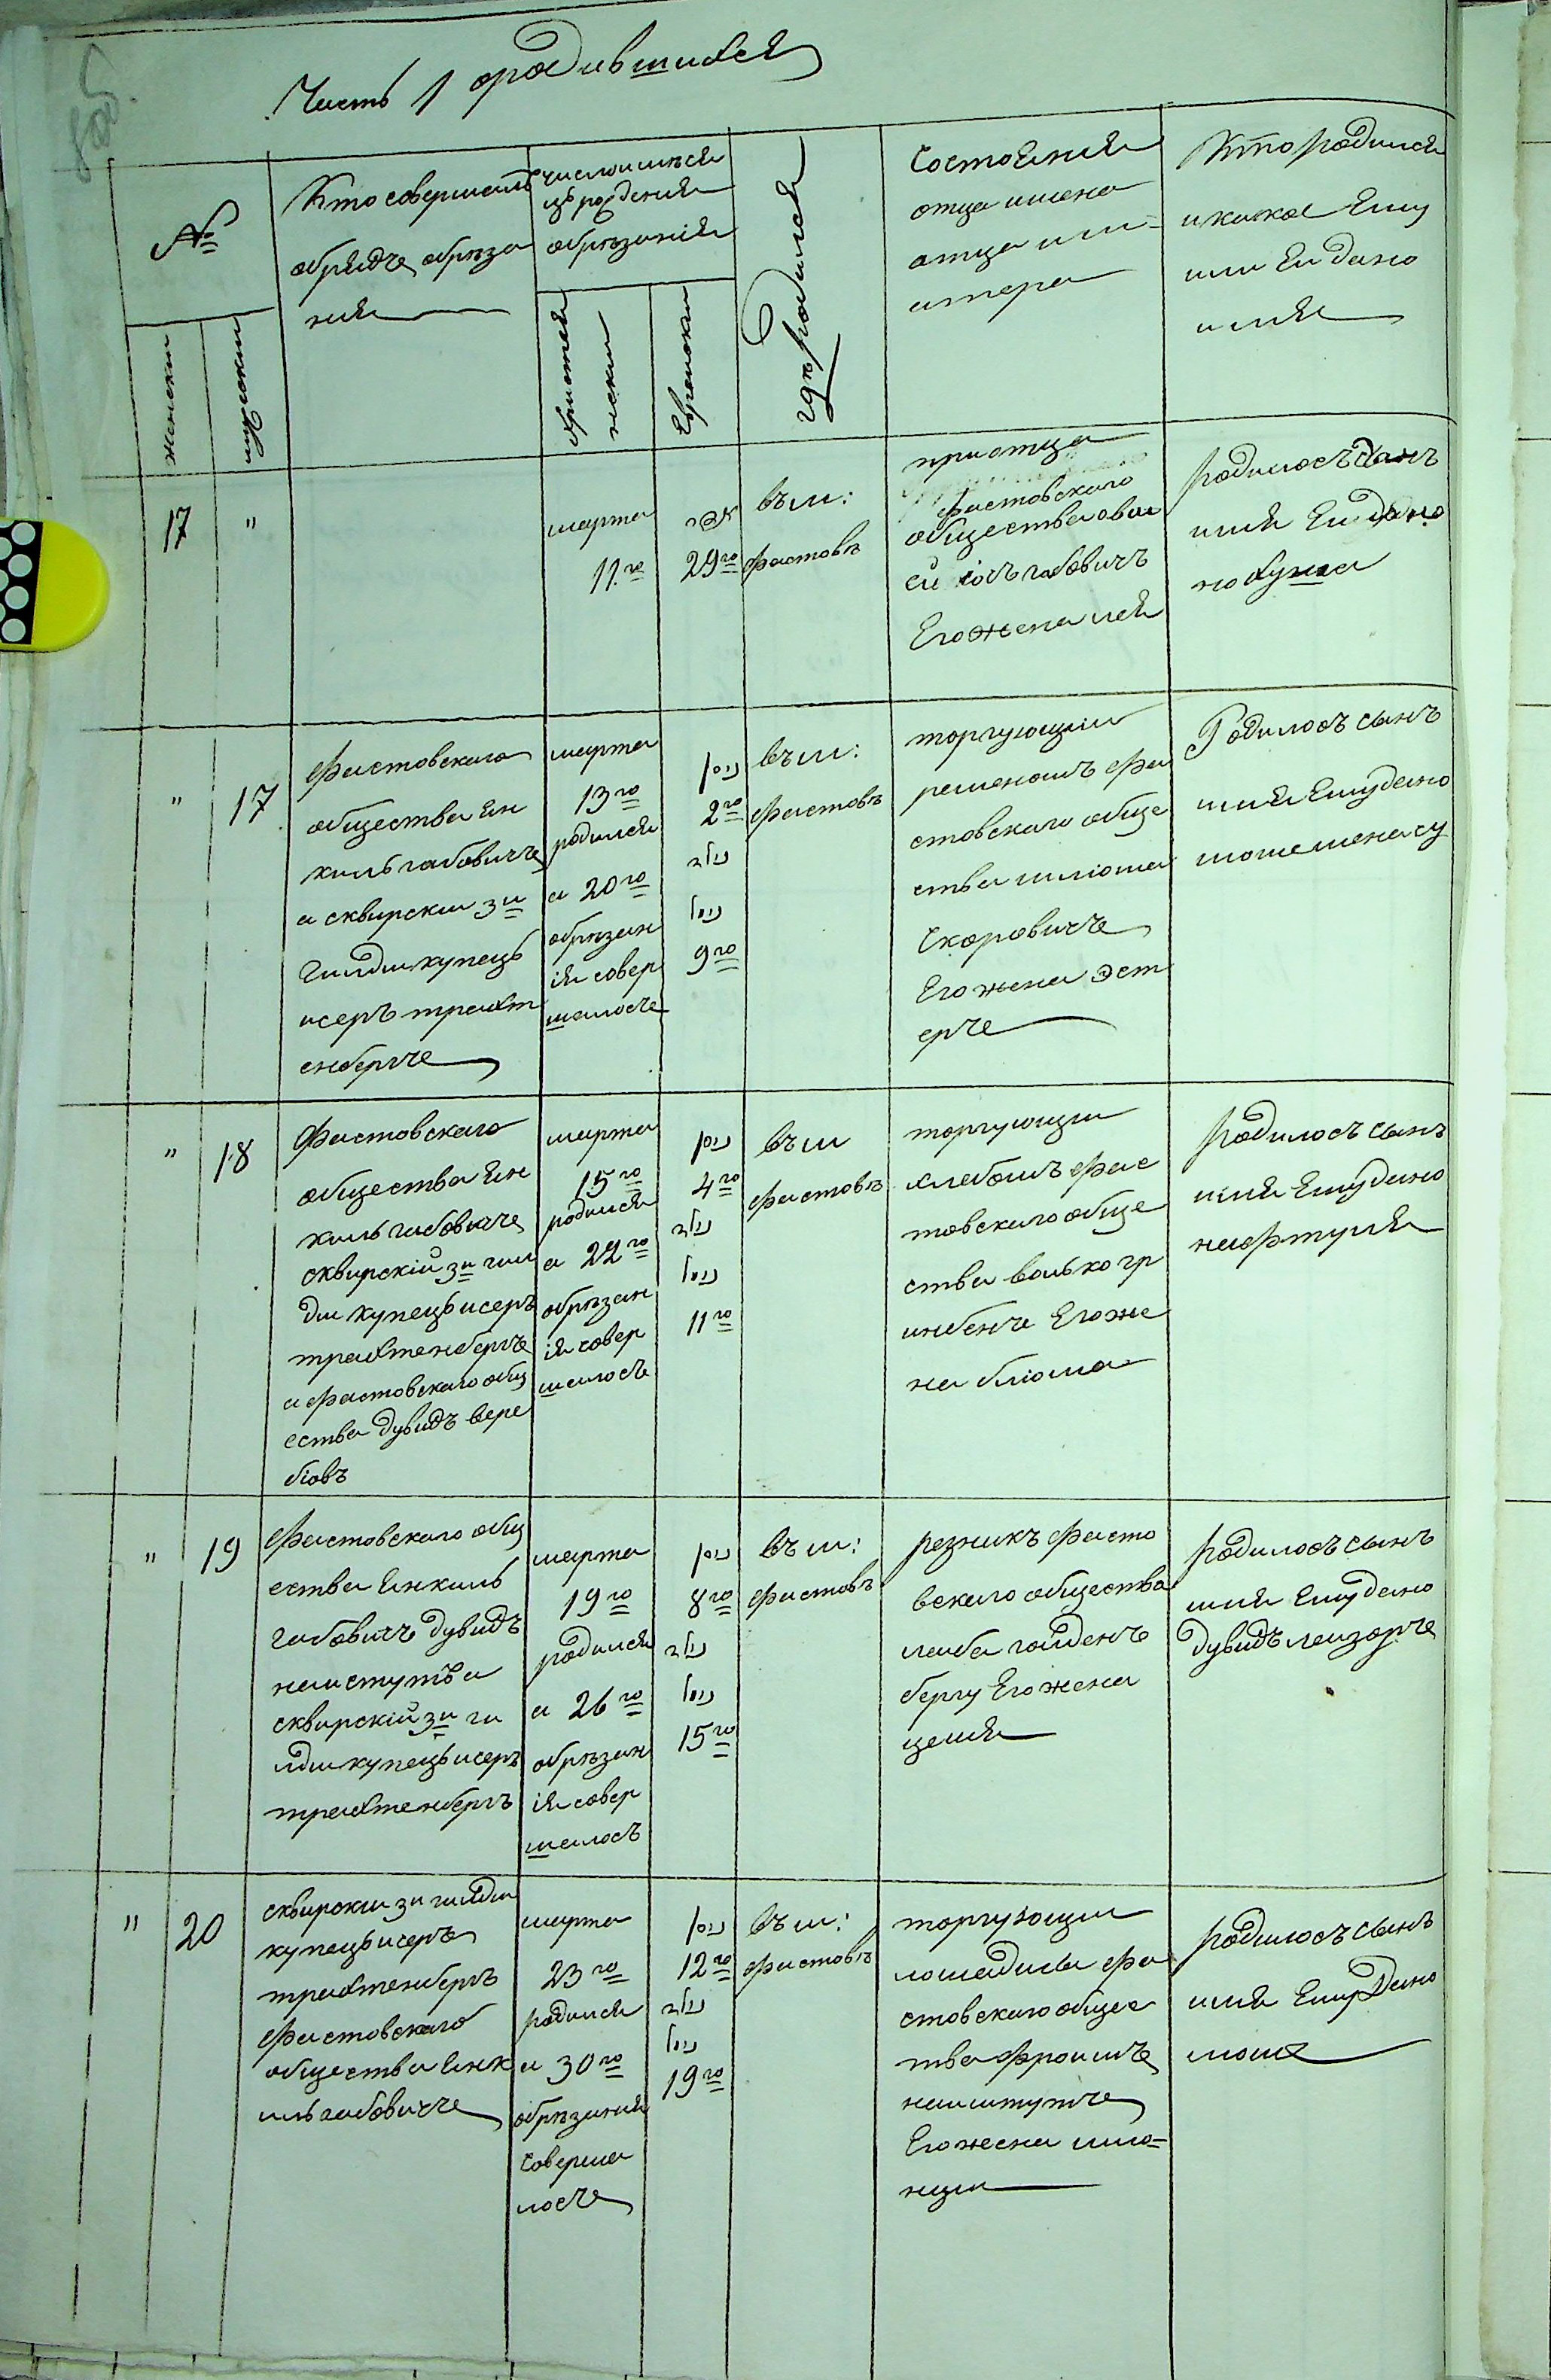 Часть 1 ородившихся
№
женскии
мужскии
Кто совершалъ
обрядъ обреза
ния
число имѣся
цъ рождения
обрѣзанія
христия
нскии
Еврейскии
гдѣ родился
состояния
отца имена
отца и ма=
тера
Кто родился
и какое Ему
или Ей дано
имя
17
"
марта
11го
אדר
29го
въ м:
фастовѣ
при отца
фастовского
общества овш
ей
габовичъ
Его жена лея
родилосъ
имя Ей дано
хума
"
17
Фастовского
общества Ян
киль габовичъ
а сквирскии 3и
гилди купецъ
исеръ трахт
енбергъ
марта
13го
родился
а 20го
обрѣзан
ія совер
шалосъ
ניסן
2го
נולד
ניסן
9го
въ м:
фастовѣ
торгующии
ременомъ фа
стовского обще
ства шлiома
Скаровичъ
Его жена эст
еръ
Родилосъ сынъ
имя Ему дано
шоме менасу
"
18
Фастовского
общества Ян
киль габовичъ
сквирскій 3и гил
ди купецъ исеръ
трахтенбергъ
а фастовского общ
ества дувидъ вере
біовъ
марта
15го
родился
а 22го
обрѣзан
ія совер
шалосъ
ניסן
4го
נולד
ניסן
11го
въ м
фастовѣ
торгующии
хлебомъ фас
товского обще
ства волько гр
инбенъ Его же
на блюма
Родилосъ сынъ
имя Ему дано
нафтуля
"
19
Фастовского общ
ества Янкиль
габовичъ дувидъ
наистутъ а
сквирскій 3и ги
лди купецъ исеръ
трахтенбергъ
марта
19го
родился
а 26го
обрѣзан
ія совер
шалосъ
ניסן
8го
נולד
ניסן
15го
въ м:
фастовъ
резникъ фасто
вского общества
лейба голденъ
бергу Его жена
ципя
родилосъ сынъ
имя Ему дано
дувидъ леизоръ
"
20
сквирскии 3и гилди
купецъ исеръ
трахтенбергъ
фастовского
общества Янк
иль габовичъ
марта
23го
родился
а 30го
обрѣзания
соверша
лосъ
ניסן
12го
נולד
ניסן
19го
въ м:
фастовѣ
торгующии
лошадима фа
стовского общес
тва фроимъ
наиштутъ
Его жена
родилосъ сынъ
имя Ему Дано
моше